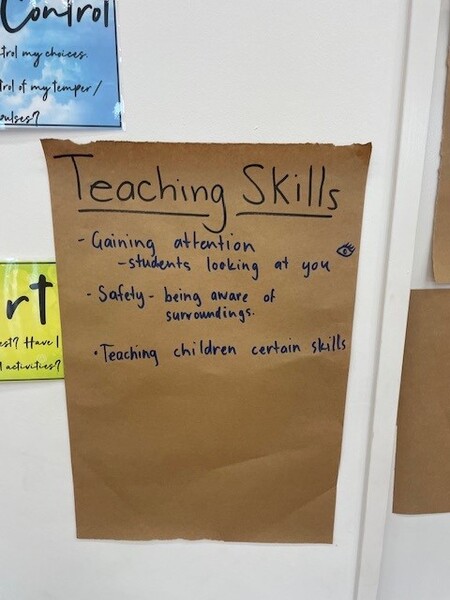 Control
trol my choices.
trol of my temper/
pulses?
Teaching Skills
- Gaining attention
- students looking at you
- Safety - being aware of
surroundings.
• Teaching children certain skills
rt
est? Have I
activities?